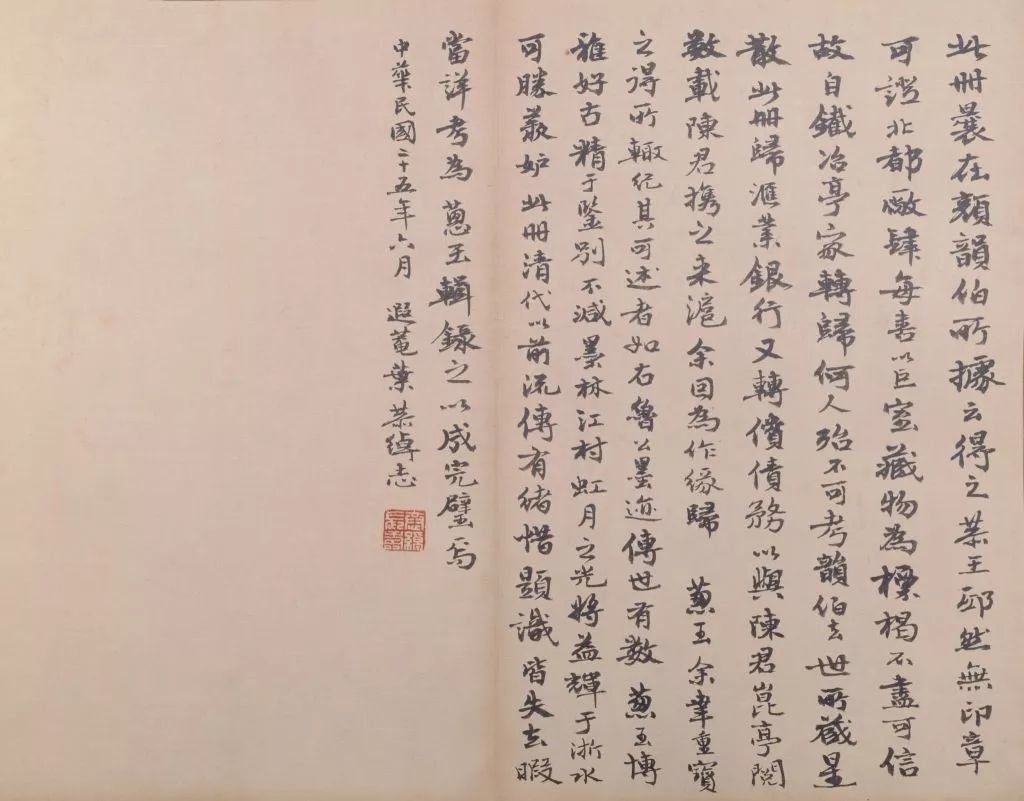 此冊曩在顏韻伯所據云得之恭王邸然無印章
可證北都廠肆每喜以巨室藏物為標榜不盡可信
故自鐵冶亭家轉歸何人殆不可考韻伯去世所藏星
散此冊歸滙業銀行又轉償債務以與陳君崑亭閱
數載陳君攜之来滬余因為作緣歸 蔥玉余韋重寶
之得所輙紀其可述者如右魯公墨迹傳世有數 蔥玉博
雅好古精于鑒別不減墨林江村虹月之光將益輝于浙水
可勝羨妒此冊清代以前流傳有緒惜題識皆失去暇
當詳考為 蔥玉輯錄之以成完璧焉
中華民國二十五年六月 遐菴葉恭綽志